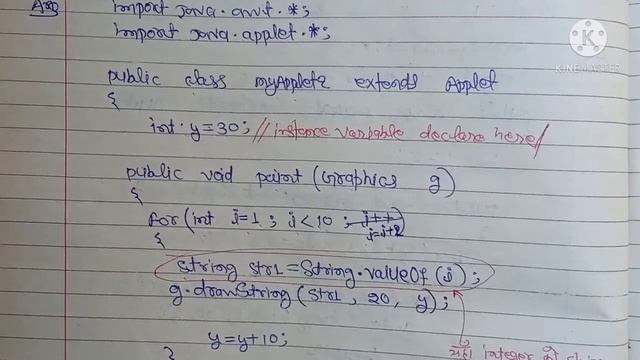 Ans
import java.awt.*;
import java.applet.*;
KINEMASTER
public class myApplet2 extends Applet
{
int y=30; //instance variable declare here/
public void paint (Graphics g)
{
for(int i=1; i<10; i++)
i=i+2
{
String str1=String.valueOf(i);
g.drawString(str1, 20, y);
y=y+10;
यहाँ integer को
}